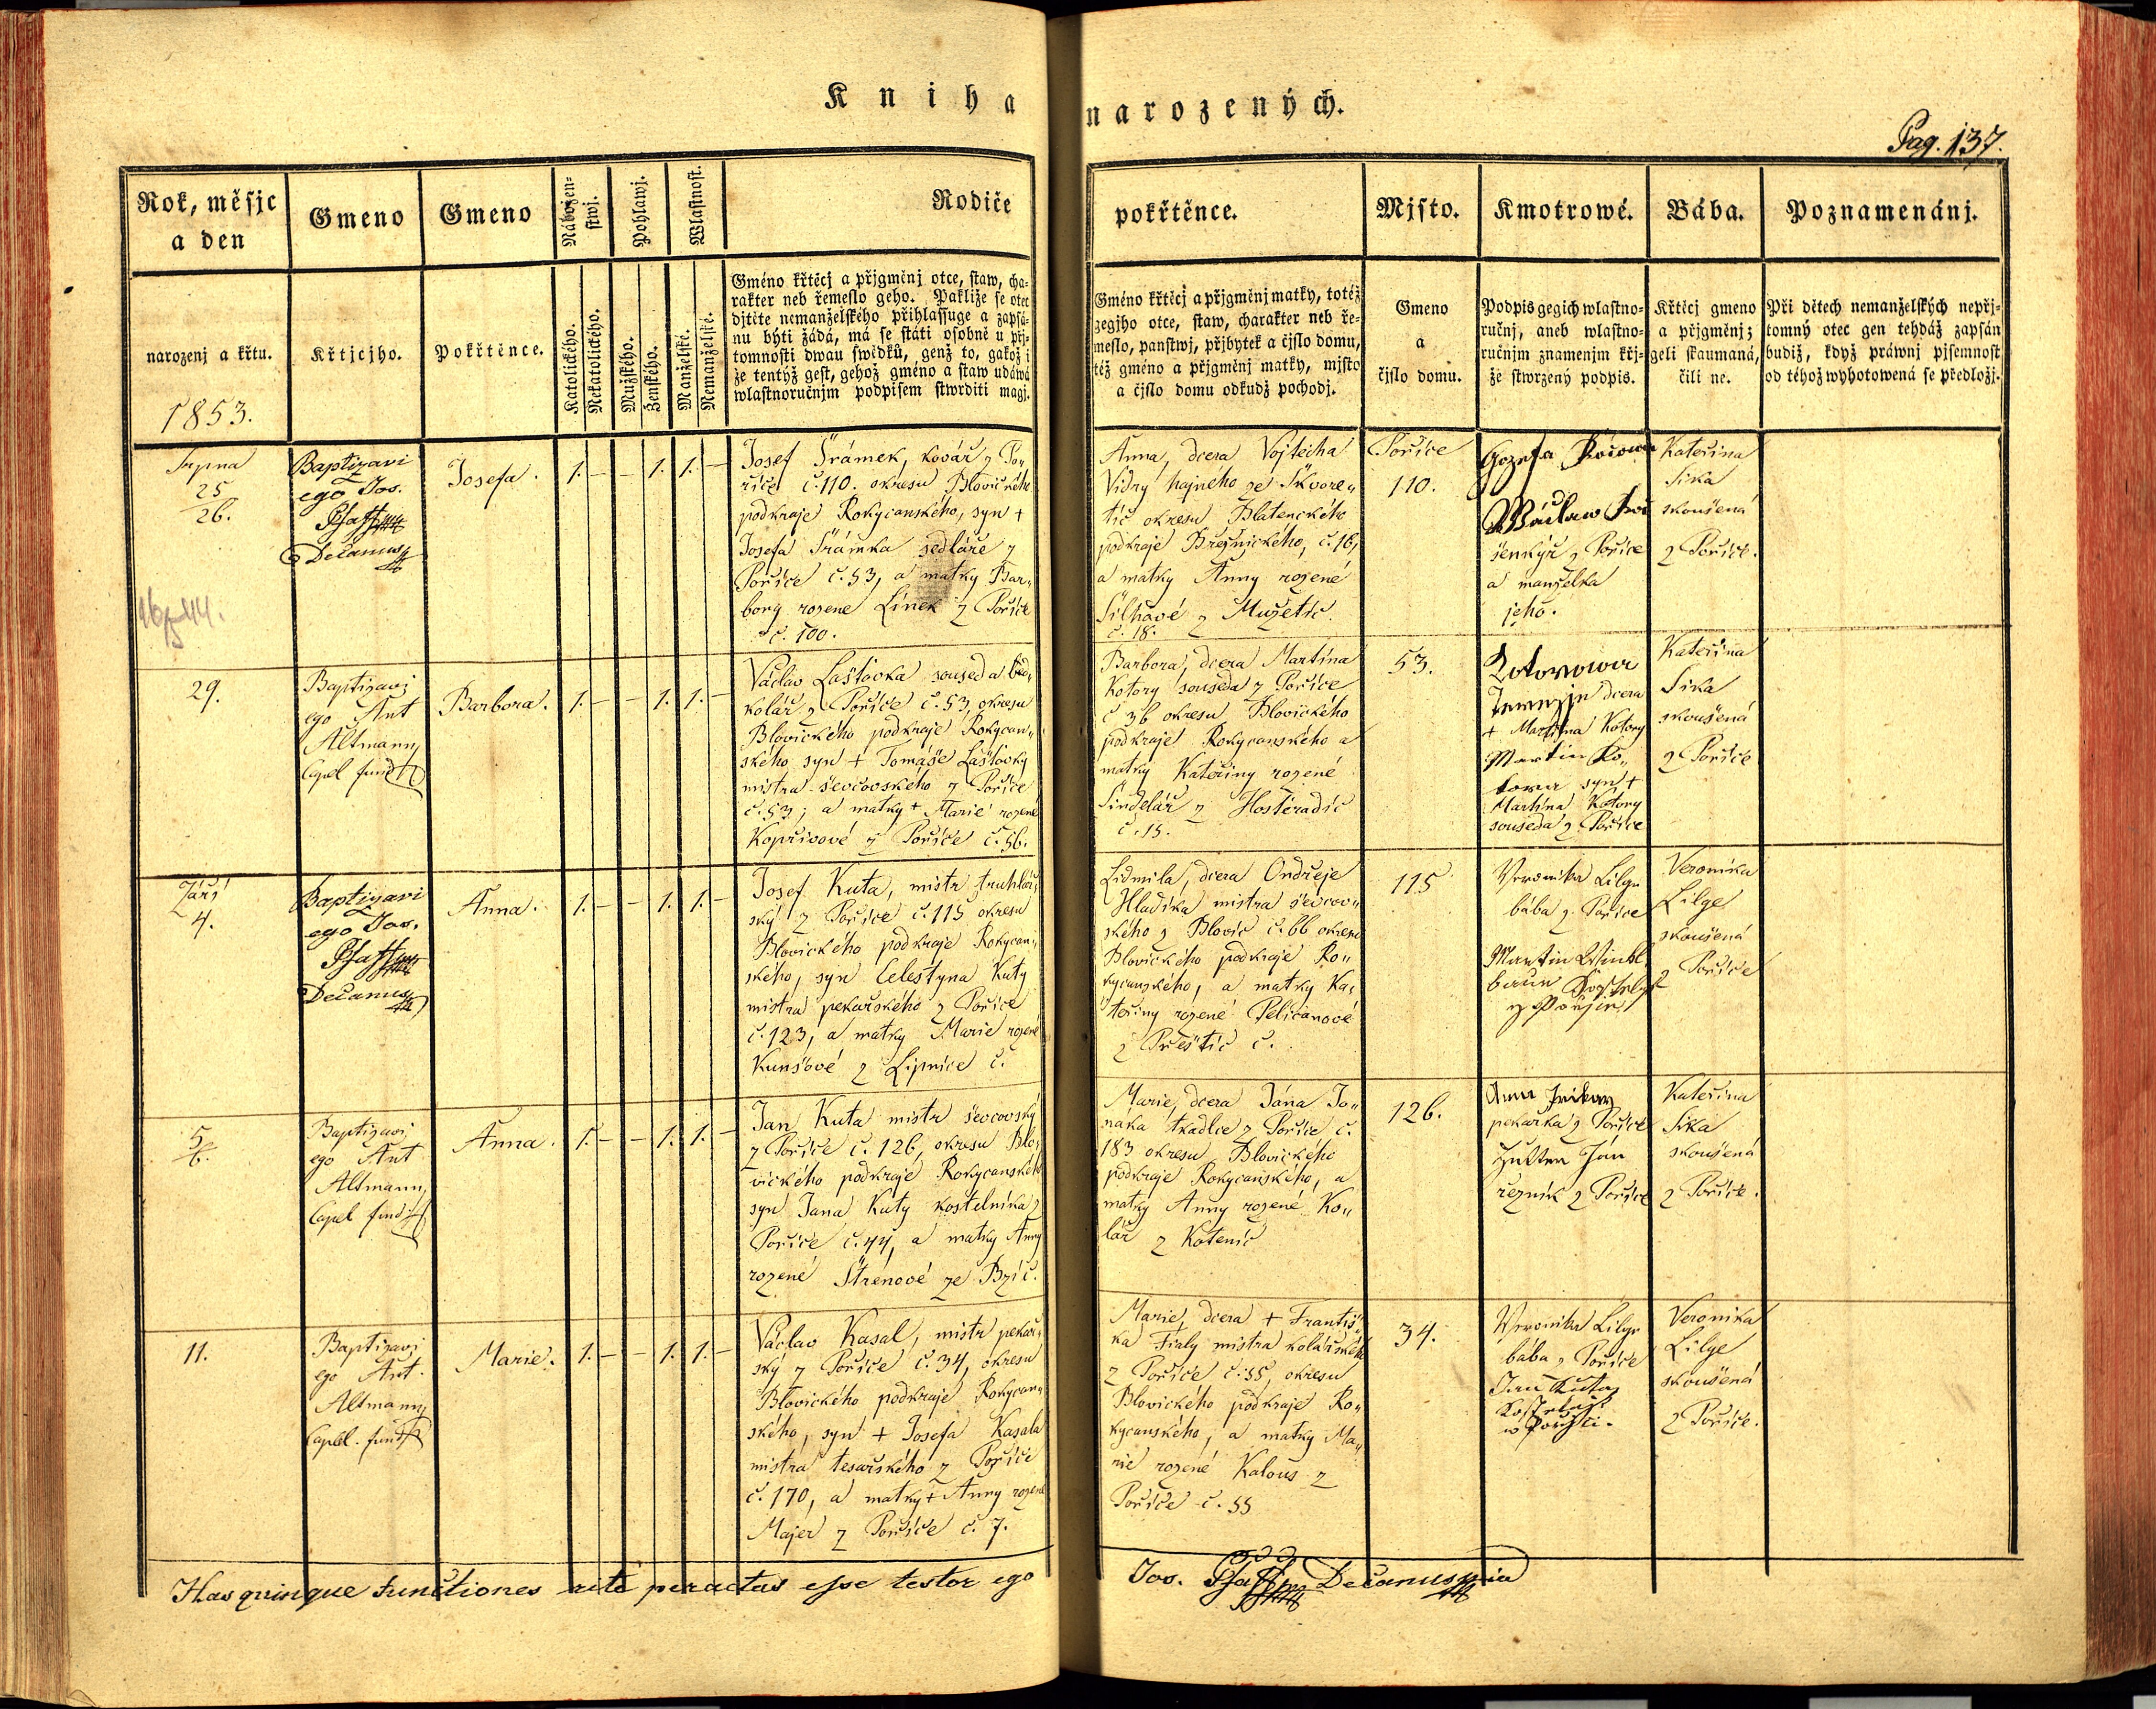 Kniha narozených.
Pag. 137.
Rok, měsjc
a den
narozenj a křtu.
1853.
Gmeno
Křtjcjho.
Gmeno
Pokřtěnce.
Nábožen-
stwj.
Katolického.
Nekatolického.
Pohlawj.
Mužského.
Ženského.
Wlastnost.
Manželské.
Nemanželské.
Rodiče
Gméno křtěcj a přjgměnj otce, staw, cha-
rakter neb řemeslo geho. Pakliže se otec
djtěte nemanželského přihlassuge a zapsá-
nu býti žádá, má se státi osobně u přj-
tomnosti dwau swědků, genž to, gakož i
že tentýž gest, gehož gméno a staw udáwá
wlastnoručnjm podpisem stwrditi magj.
pokřtěnce.
Gméno křtěcj a přjgměnj matky, totéž
gegjho otce, staw, charakter neb ře-
meslo, panstwj, přjbytek a čjslo domu,
též gméno a přjgměnj matky, mjsto
a čjslo domu odkudž pochodj.
Mjsto.
Gmeno
a
čjslo domu.
Kmotrowé.
Podpis gegich wlastno-
ručnj, aneb wlastno-
ručnjm znamenjm křj-
že stwrzený podpis.
Bába.
Křtěcj gmeno
a přjgměnj;
geli skaumaná,
čili ne.
Poznamenánj.
Při dětech nemanželských nepřj-
tomný otec gen tehdáž zapsán
budiž, když práwnj pjsemnost
od téhož wyhotowená se předložj.
Srpna
25
26.
Baptizavi
ego Jos.
Pfaff
Dečanus
Josefa.
1. – – 1. 1. –
Josef Šrámek, kovář z Po„
říče č. 110. okresu Blovického
podkraje Rokycanského, syn +
Josefa Šrámka sedláře z
Poříče č. 53, a matky Bar„
bory rozene Línek z Poříče
č. 100.
Anna, dcera Vojtěcha
Vidny hajného ze Škvore„
tic okresu Blatenckého
podkraje Březnického, č. 16,
a matky Anny rozené
Šilhavé z Mužetic
č. 18.
Poříče
110.
Gozefa
Wáclaw
z Poříče
a manželka
jeho.
Kateřina
Sika
skoušená
z Poříče.
29.
Baptizavi
ego Ant
Altmann
Capel fund
Barbora.
1. – – 1. 1. –
Václav Laštovka soused a
kolář z Poříče č. 53, okresu
Blovického podkraje Rokycan„
ského syn + Tomáše Laštovky
mistra ševcovského z Poříče
č. 53; a matky + Marie rozené
Kopřivové z Poříče č. 56.
Barbora, dcera Martina
Kotory souseda z Poříče
č 36 okresu Blovického
podkraje Rokycanského a
matky Kateřiny rozené
Šindelář z Hostěradic
č. 15.
53.
Kotorowa
dcera
+ Martina Kotory
Martin Ko„
tora syn +
Martina Kotory
souseda z Poříče
Kateřina
Sika
skoušená
z Poříče
Září
4.
Baptizavi
ego Jos.
Pfaff
Dečanus
Anna.
1. – – 1. 1. –
Josef Kuta, mistr truhlář„
ský z Poříče č. 115 okresu
Blovického podkraje Rokycan„
ského, syn Celestyna Kuty
mistra pekařského z Poříče
č. 123, a matky Marie rozené
Kunšové z Lipnice č.
Lidmila, dcera Ondřeje
Hladíka mistra ševcov„
ského z Blovic č. 66 okresu
Blovického podkraje Ro„
kycanského, a matky Ka„
teřiny rozené Pelicanové
z Přeštic č.
115
Veronika Lilge
bába z Poříče
Martin Winkl
baur
Veronika
Lilge
skoušená
z Poříče
5
6.
Baptizavi
ego Ant
Altmann
Capel fund
Anna.
1. – – 1. 1. –
Jan Kuta mistr ševcovský
z Poříče č. 126, okresu Blo„
vického podkraje Rokycanského
syn Jana Kuty kostelníka z
Poříče č. 44, a matky Anny
rozené Štrénové ze Bzíč.
Marie, dcera Jána Jo„
náka tkadlce z Poříče č.
183 okresu Blovického
podkraje Rokycanského, a
matky Anny rozené Ko„
lář z Kotenic
126.
Anna
pekařka z Poříče
Jan
řezník z Poříče
Kateřina
Sika
skoušená
z Poříče.
11.
Baptizavi
ego Ant.
Altmann
Capel. fund
Marie.
1. – – 1. 1. –
Václav Kasal, mistr pekař„
ský z Poříče č. 34, okresu
Blovického podkraje Rokycan„
ského, syn + Josefa Kasala
mistra tesařského z Poříče
č. 170, a matky + Anny rozené
Majer z Poříče č. 7.
Marie, dcera + Františ„
ka Fialy mistra kolářského
z Poříče č. 55, okresu
Blovického podkraje Ro„
kycanského, a matky Ma„
rie rozené Kalous z
Poříče č. 55
34.
Veronika Lilge
bába z Poříče
Jan Kuta
Veronika
Lilge
skoušená
z Poříče.
Has quinque functiones rite peractas esse testor ego Jos. Pfaff Dečanus